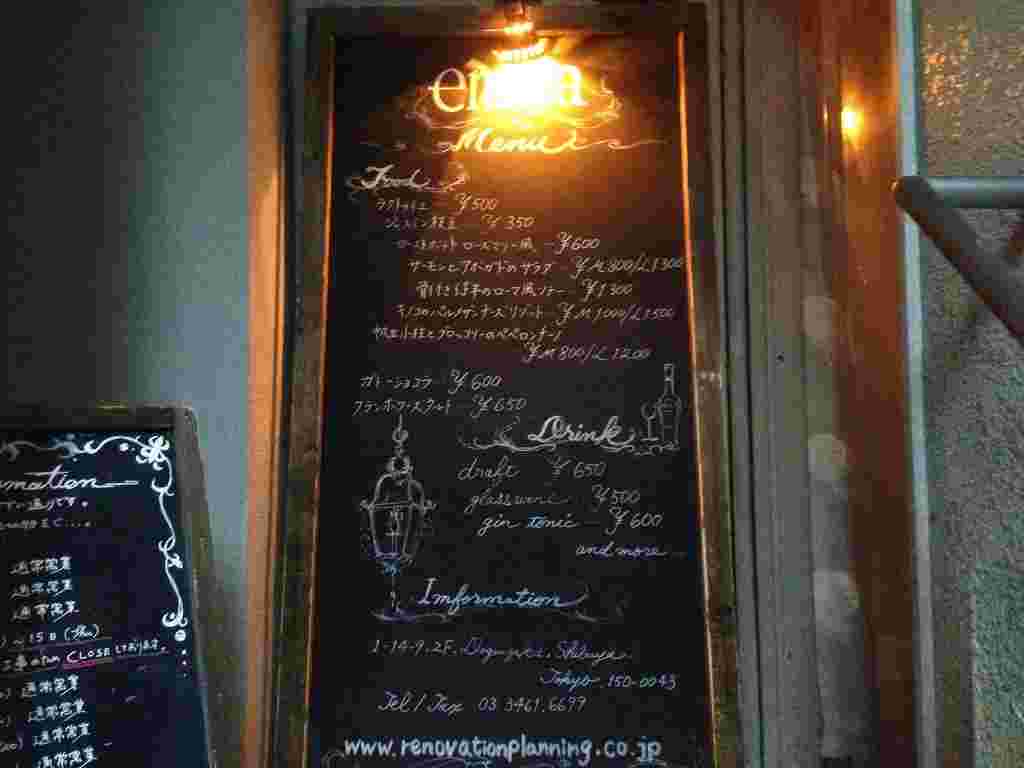 Menu
Food
ラタトゥイユ ¥500
ジャスミン枝豆 ¥350
ローストポテト ローズマリー風 ¥600
サーモンとアボカドのサラダ ¥M800/L1300
骨付き仔羊のローマ風ソテー ¥1300
キノコのパルメザンチーズリゾット ¥M1000/L1500
帆立小柱とブロッコリーのペペロンチーノ
¥M800/L1200
ガトーショコラ ¥600
フランボワーズタルト ¥650
Drink
draft ¥650
glass wine ¥500
gin tonic ¥600
and more...
Information
1-14-9.2F. Dogenzaka. Shibuya.
Tokyo. 150-0043
Tel / Fax 03.3461.6699
www.renovationplanning.co.jp
rmation
通りです。
通常営業
通常営業
通常営業
~15日(thu)
CLOSEしております。
通常営業
通常営業
通常営業
通常営業